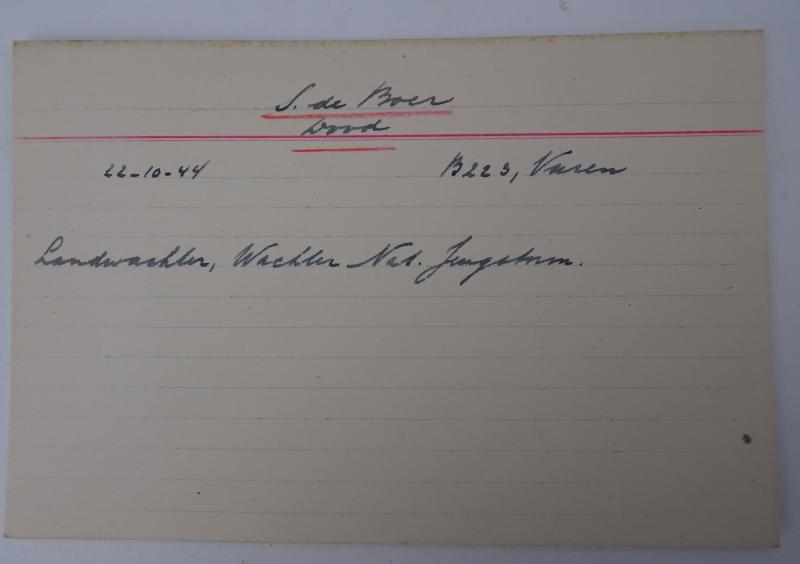 S. de Boer
Dood
22-10-44 B223, Vuren
Landwachter, Wachter Nat. Jeugstorm.